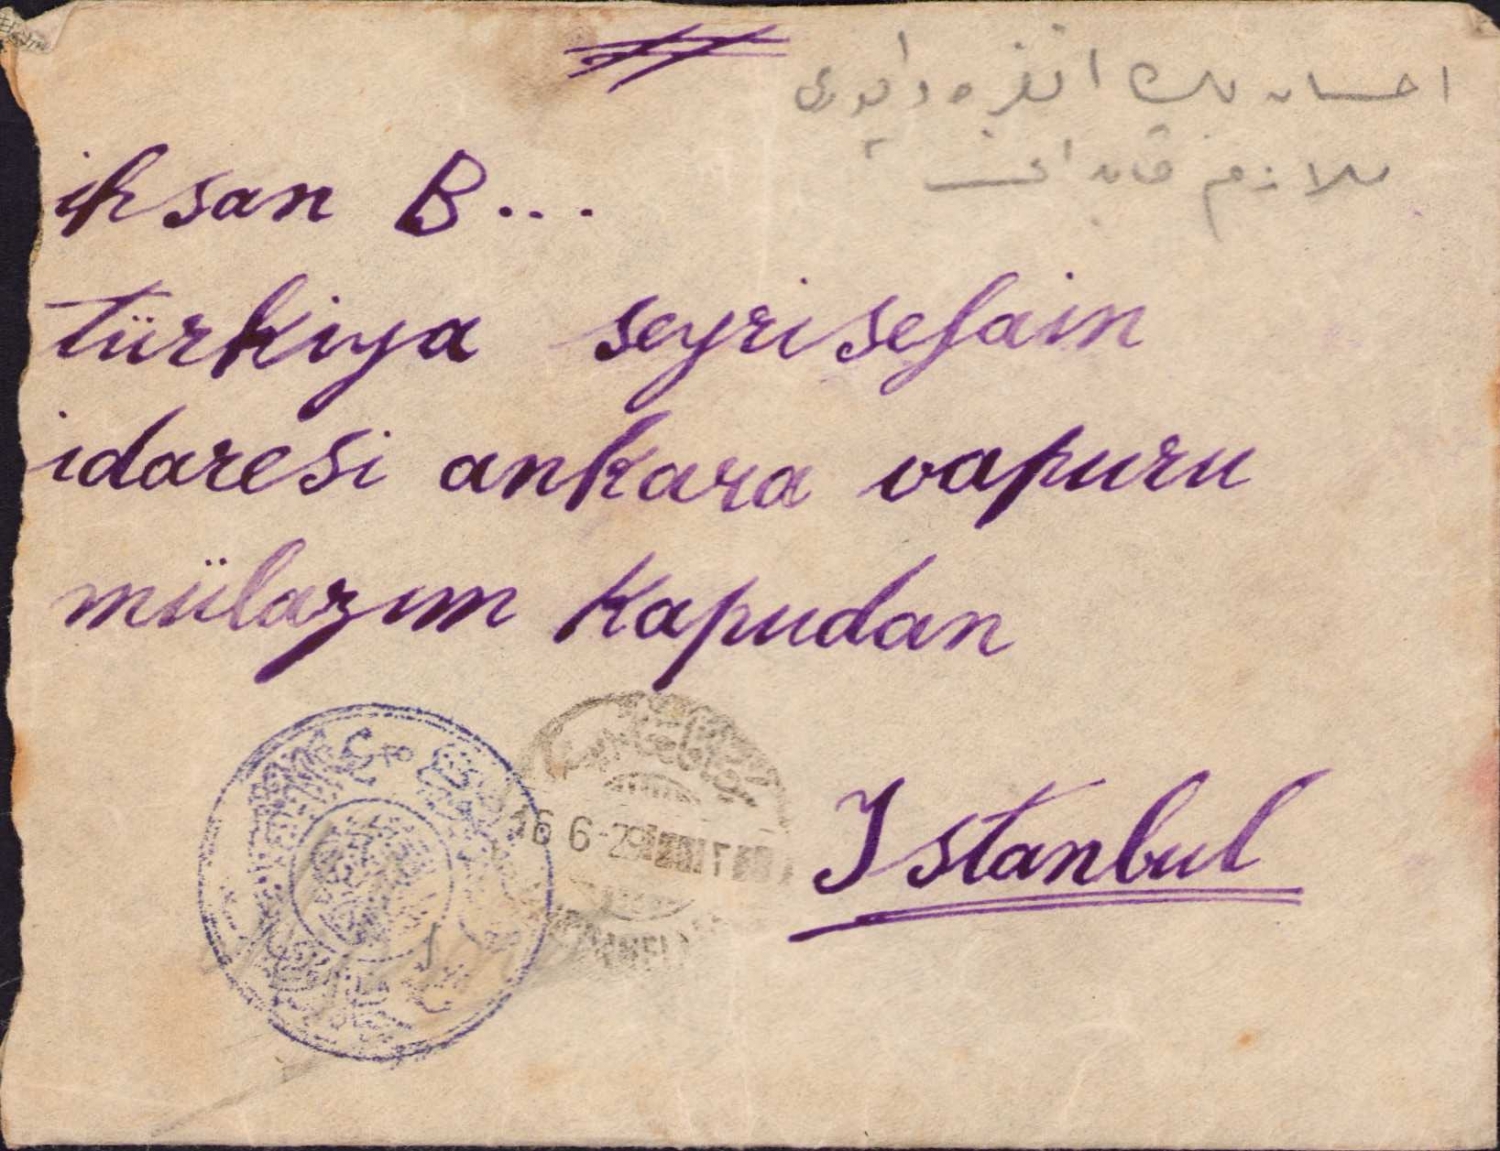 احسان بك انقره واپوری
ملازم قاپودانی
ihsan B...
türkiya seyrisefain
idaresi ankara vapuru
mülazım kapudan
Istanbul
16 6-29